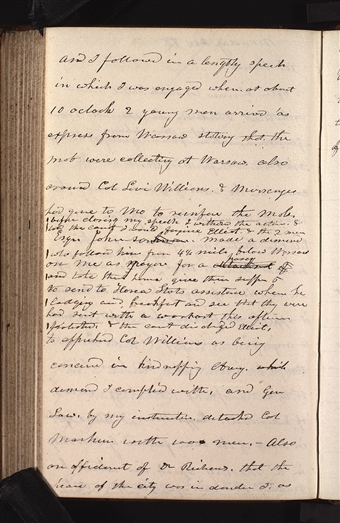 and I followed in a lengthy speech
in which I was engaged when at about
10 oclock 2 young men arrived as
express from Warsaw stating that the
mob were collecting at Warsaw also
around Col Levi Williams. & messenges
had gone to Mo to reinforce the Mob.
before closing my speech I withdrew the action &
the court & Elliot. & the 2 men
Esqr John made a demand
who followed him from 4½ miles below Warsaw
on me as Mayor for a posse
and told them give them supper
to send to Nova State assistance when he
Lodging and breakfast and see that they were
had sent with a this afternoon
protected & the court discharged Elliott,
to apprehend Col Williams as being
concerned in kidnapping Avery. which
demand I complied with, and Gen
Law. by my instruction detached Col
Markham with 100 men, - Also
on affidavit of Dr Richards. that the
peace of the city was in danger I. as